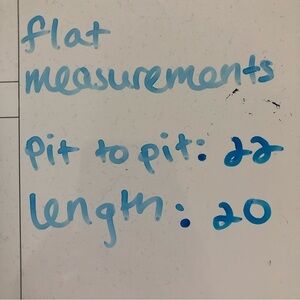 flat
measurements
pit to pit: 22
length: 20